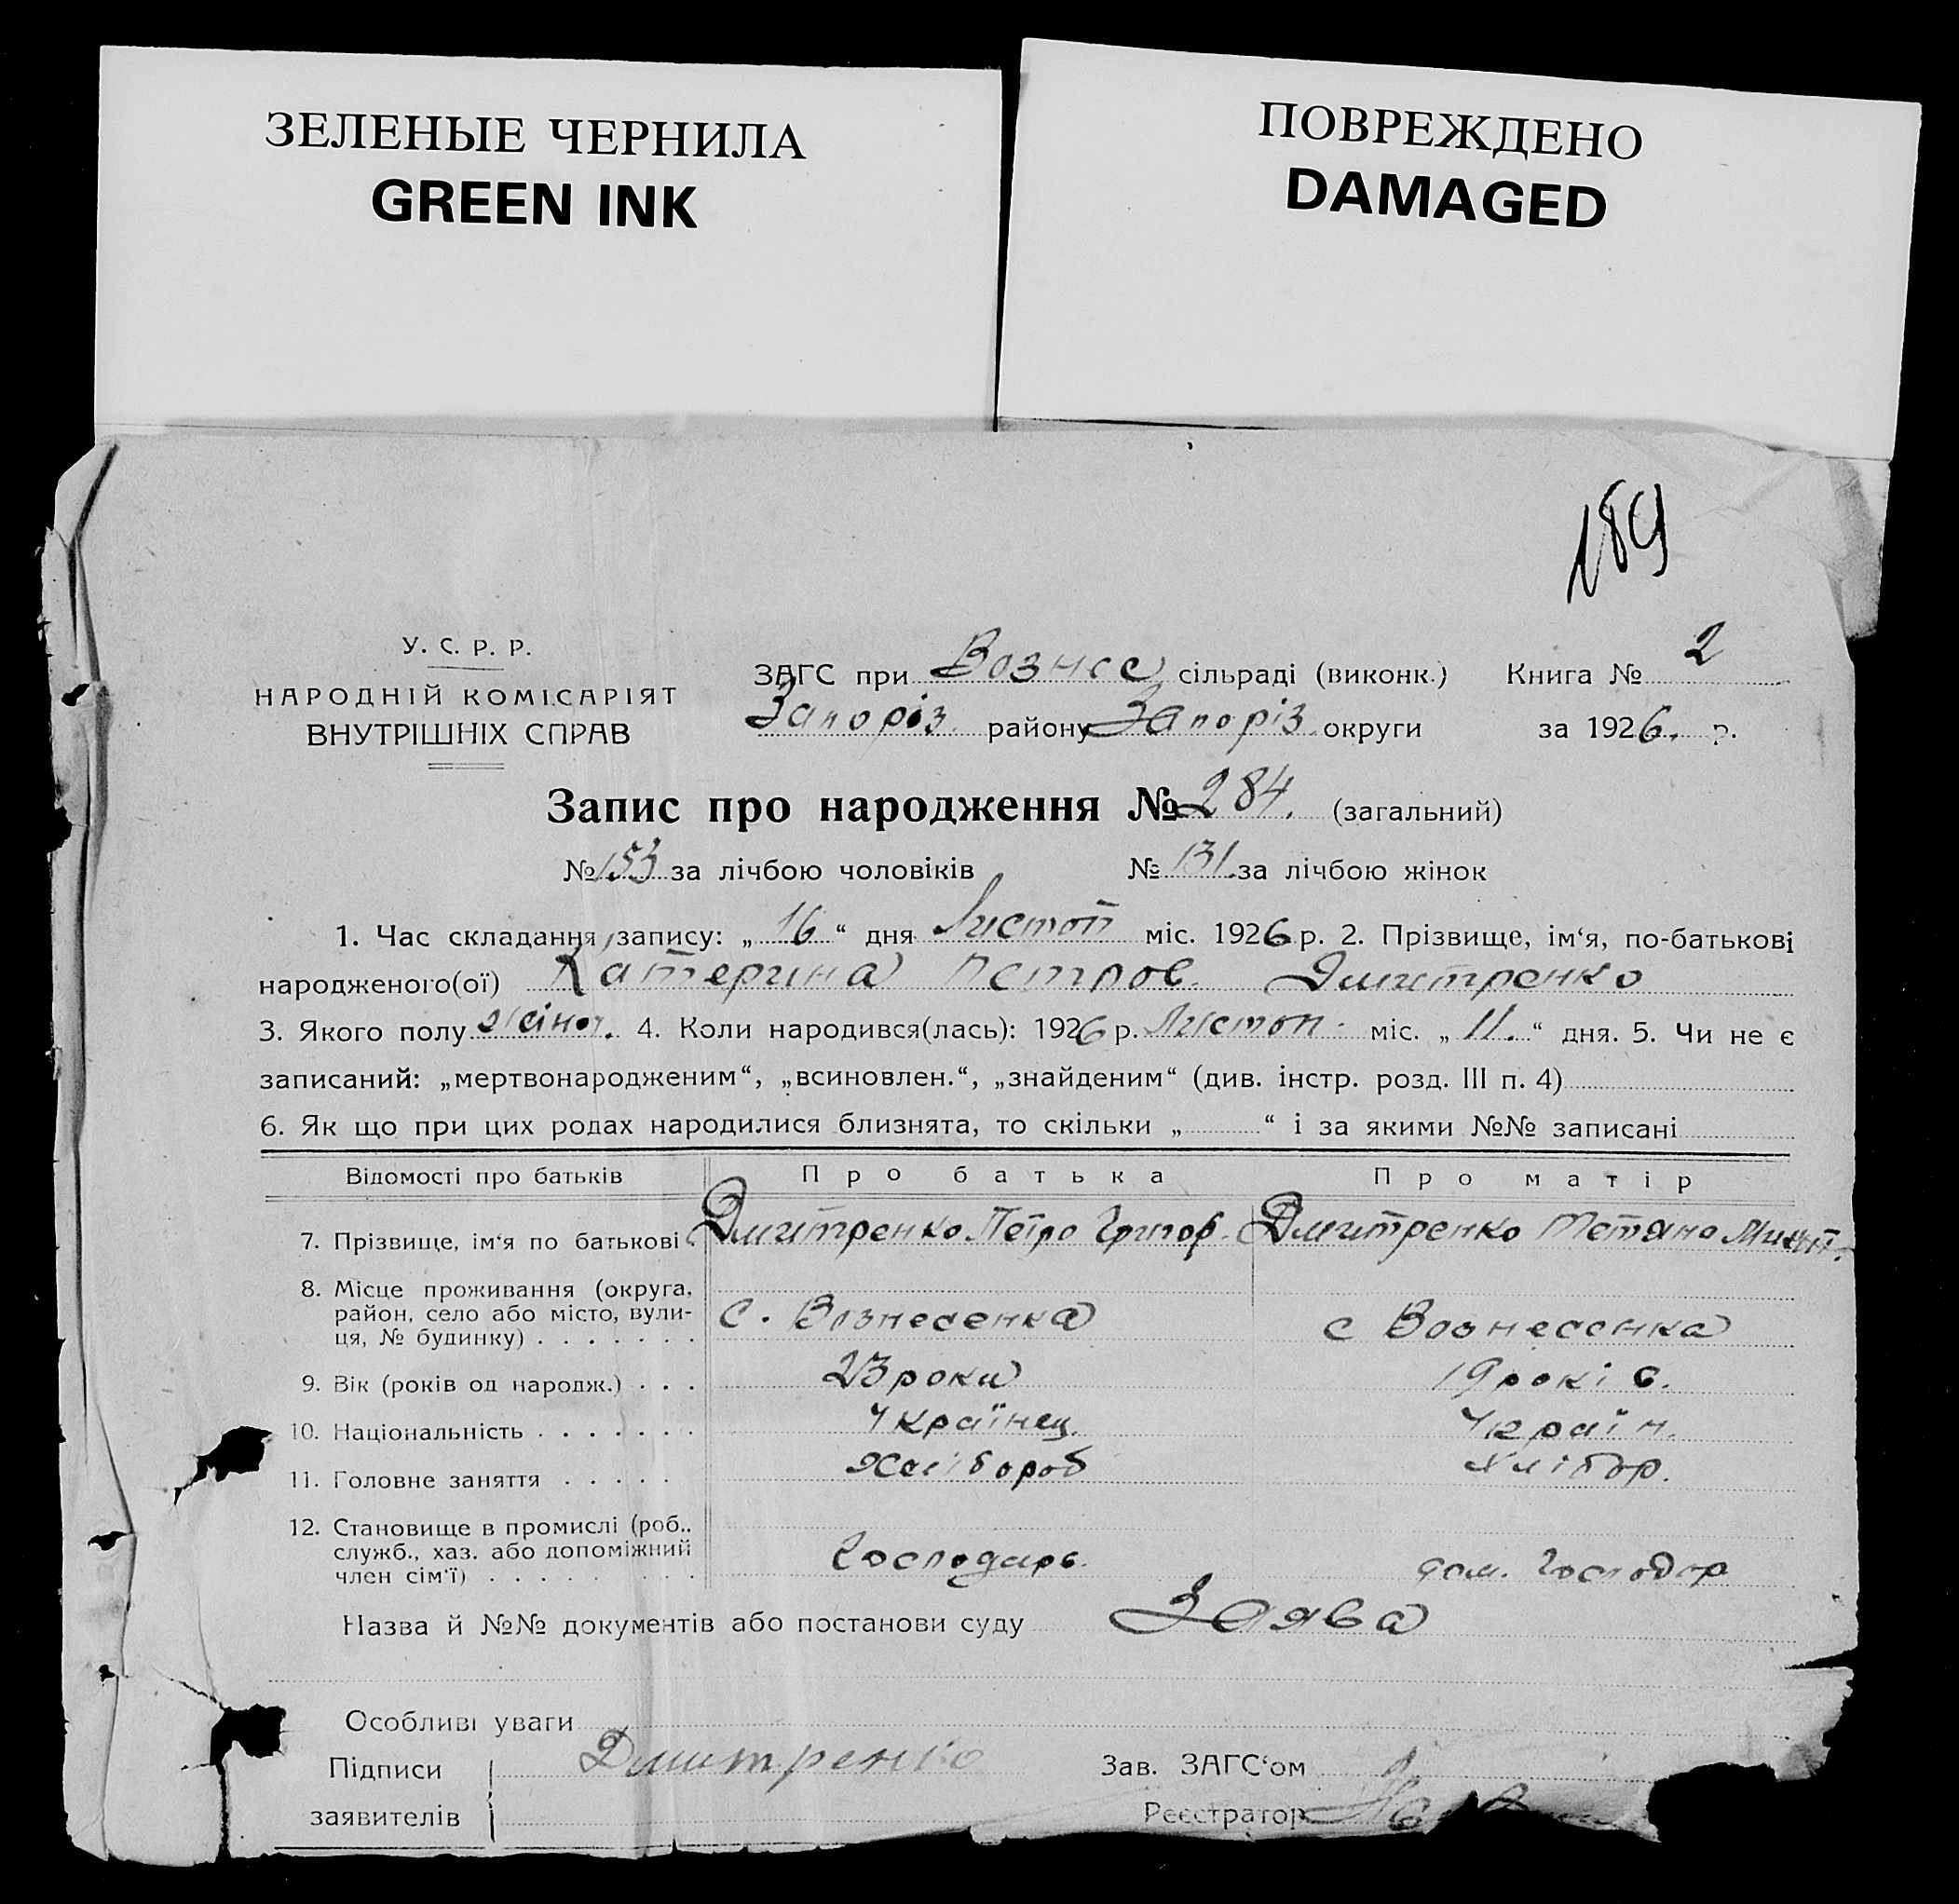 ЗЕЛЕНЫЕ ЧЕРНИЛА
GREEN INK
ПОВРЕЖДЕНО
DAMAGED
189
У. С. Р. Р.
НАРОДНІЙ КОМІСАРІЯТ
ВНУТРІШНІХ СПРАВ
ЗАГС при Вознес сільраді (виконк.) Книга № 2
Запоріз. району Запоріз. округи за 1926. р.
Запис про народження № 284. (загальний)
№ 153 за лічбою чоловіків № 131. за лічбою жінок
1. Час складання запису: „16“ дня Листоп міс. 1926 р. 2. Прізвище, ім‘я, по-батькові
народженого(ої) Катерина Петров. Дмитренко
3. Якого полу жіноч. 4. Коли народився(лась): 1926 р. Листоп. міс. „11.“ дня. 5. Чи не є
записаний: „мертвонародженим“, „всиновлен.“, „знайденим“ (див. інстр. розд. III п. 4)
6. Як що при цих родах народилися близнята, то скільки „ “ і за якими №№ записані
Відомості про батьків Про батька Про матір
7. Прізвище, ім‘я по батькові. Дмитренко Петро Григор. Дмитренко Тетяна
8. Місце проживання (округа,
район, село або місто, вули-
ця, № будинку) . . . . . . . с. Вознесенка с Вознесенка
9. Вік (років од народж.) . . . 23 роки 19 років.
10. Національність . . . . . . . Українец. Україн.
11. Головне заняття . . . . . Хлібороб Хлібор.
12. Становище в промислі (роб.,
служб., хаз. або допоміжний
член сім‘ї) . . . . . . . . . Господарь. дом. Господар
Назва й №№ документів або постанови суду Заява
Особливі уваги
Підписи Дмитренко Зав. ЗАГС‘ом
заявителів Реєстратор